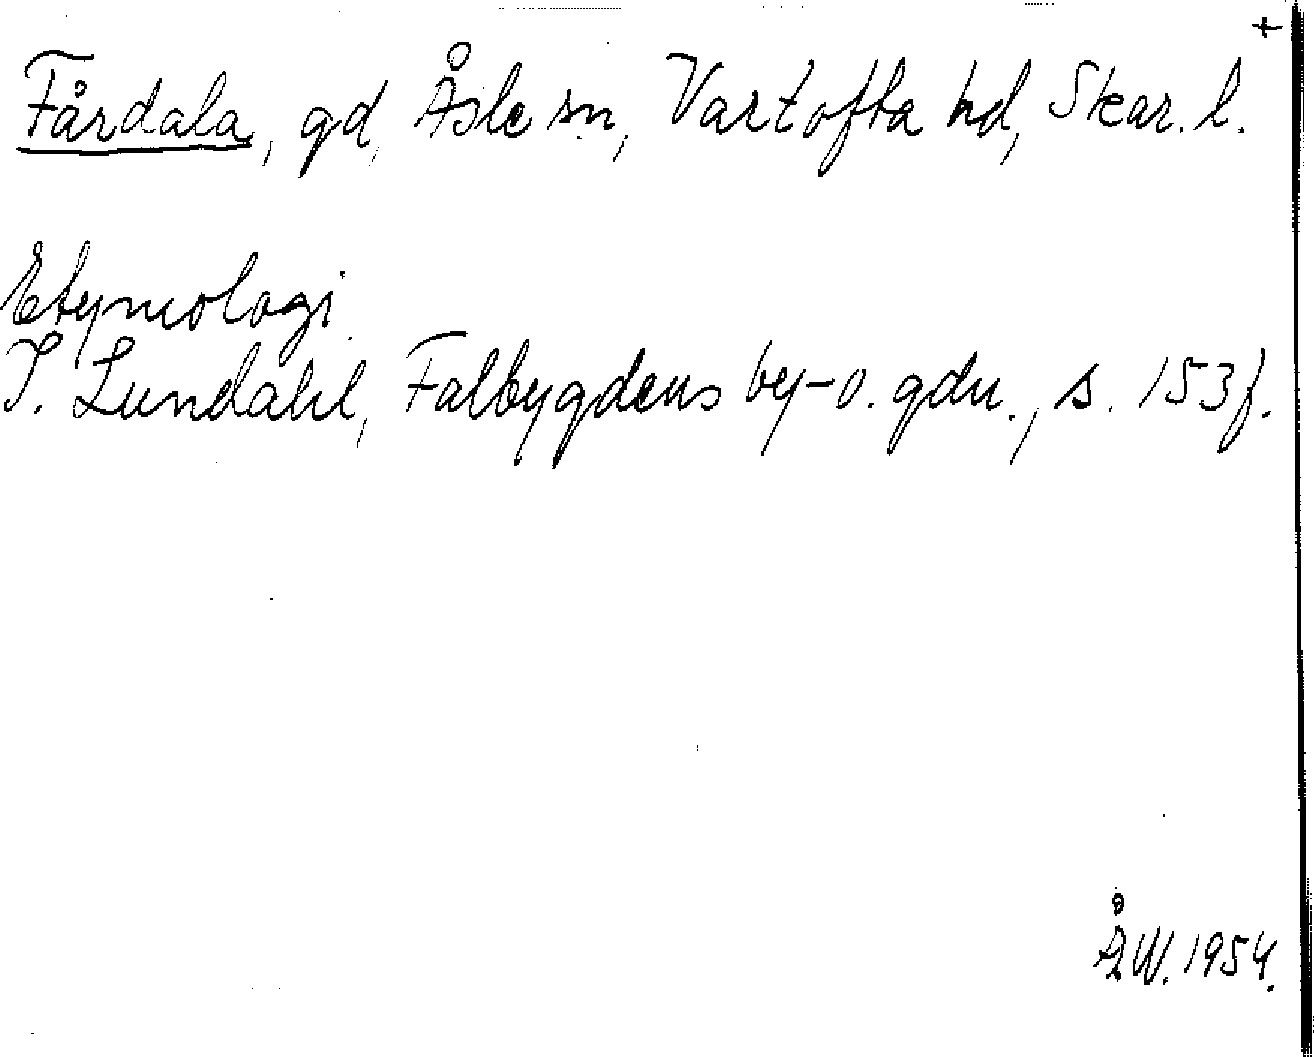 +
Fårdala, gd, Åsle sn, Vartofta hd, Skar. l.
Etymologi
I. Lundahl, Falbygdens by- o. gdn., s. 153 f.
ÅW. 1954.